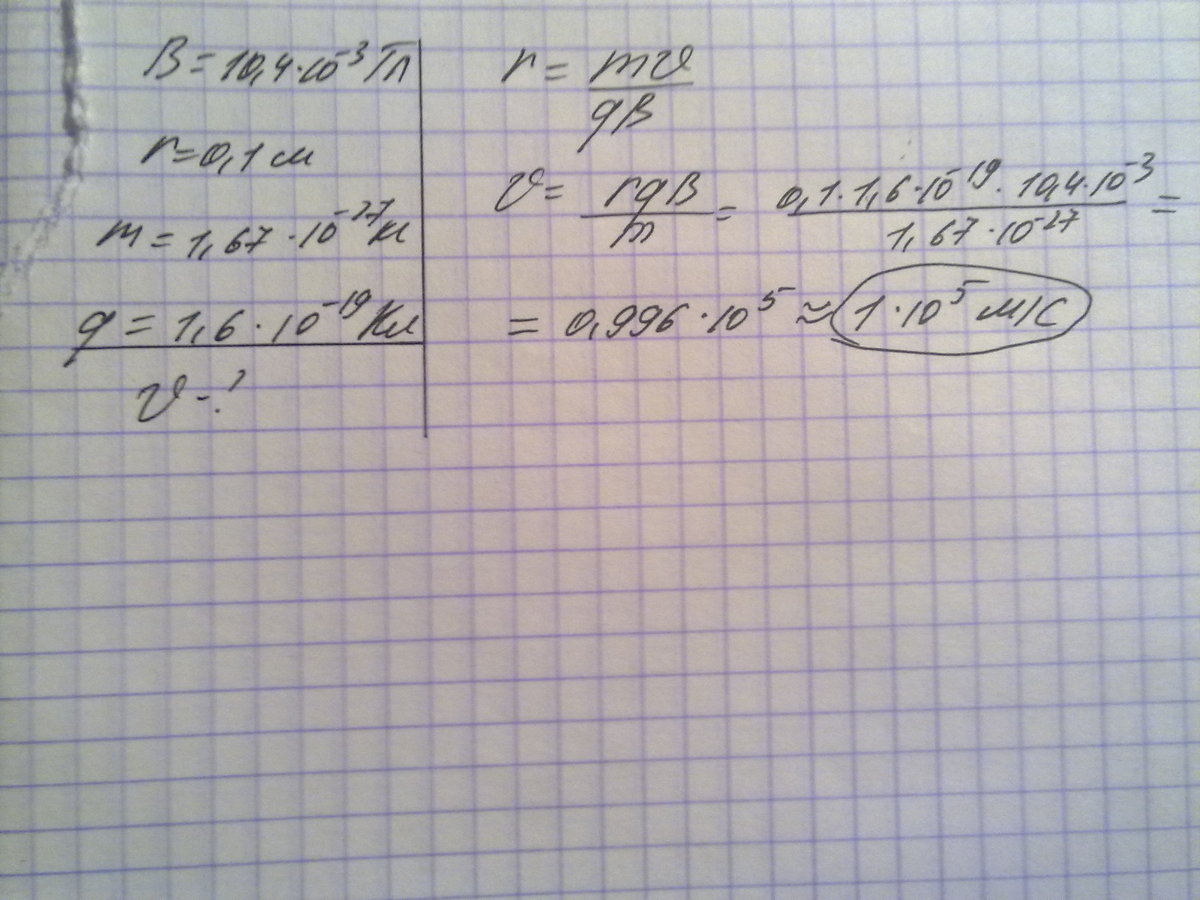 B = 10,4·10⁻³ Тл
r = 0,1 м
m = 1,67·10⁻²⁷ кг
q = 1,6·10⁻¹⁹ Кл
v - ?
r = mv / qB
v = rqB / m = 0,1·1,6·10⁻¹⁹·10,4·10⁻³ / 1,67·10⁻²⁷ =
= 0,996·10⁵ ≈ 1·10⁵ м/с